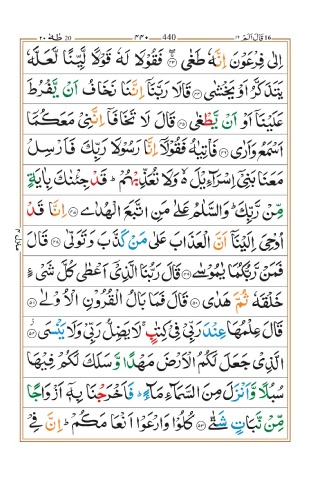 ٢٠ طٰهٰ 20 ٤٤٠ 440 ١٦ قَالَ اَلَمْ 16
اِلٰى فِرْعَوْنَ اِنَّهٗ طَغٰى ﴿٤٣﴾ فَقُوْلَا لَهٗ قَوْلًا لَّيِّنًا لَّعَلَّهٗ
يَتَذَكَّرُ اَوْ يَخْشٰى ﴿٤٤﴾ قَالَا رَبَّنَاۤ اِنَّنَا نَخَافُ اَنْ يَّفْرُطَ
عَلَيْنَاۤ اَوْ اَنْ يَّطْغٰى ﴿٤٥﴾ قَالَ لَا تَخَافَاۤ اِنَّنِيْ مَعَكُمَاۤ
اَسْمَعُ وَاَرٰى ﴿٤٦﴾ فَاْتِيٰهُ فَقُوْلَاۤ اِنَّا رَسُوْلَا رَبِّكَ فَاَرْسِلْ
مَعَنَا بَنِيْۤ اِسْرَآءِيْلَ ۙ وَلَا تُعَذِّبْهُمْ ؕ قَدْ جِئْنٰكَ بِاٰيَةٍ
مِّنْ رَّبِّكَ ؕ وَالسَّلٰمُ عَلٰى مَنِ اتَّبَعَ الْهُدٰى ﴿٤٧﴾ اِنَّا قَدْ
اُوْحِيَ اِلَيْنَاۤ اَنَّ الْعَذَابَ عَلٰى مَنْ كَذَّبَ وَتَوَلّٰى ﴿٤٨﴾ قَالَ
فَمَنْ رَّبُّكُمَا يٰمُوْسٰى ﴿٤٩﴾ قَالَ رَبُّنَا الَّذِيْۤ اَعْطٰى كُلَّ شَيْءٍ
خَلْقَهٗ ثُمَّ هَدٰى ﴿٥٠﴾ قَالَ فَمَا بَالُ الْقُرُوْنِ الْاُوْلٰى ﴿٥١﴾
قَالَ عِلْمُهَا عِنْدَ رَبِّيْ فِيْ كِتٰبٍ ۚ لَا يَضِلُّ رَبِّيْ وَلَا يَنْسَى ﴿٥٢﴾
الَّذِيْ جَعَلَ لَكُمُ الْاَرْضَ مَهْدًا وَّسَلَكَ لَكُمْ فِيْهَا
سُبُلًا وَّاَنْزَلَ مِنَ السَّمَآءِ مَآءً ؕ فَاَخْرَجْنَا بِهٖۤ اَزْوَاجًا
مِّنْ نَّبَاتٍ شَتّٰى ﴿٥٣﴾ كُلُوْا وَارْعَوْا اَنْعَامَكُمْ ؕ اِنَّ فِيْ